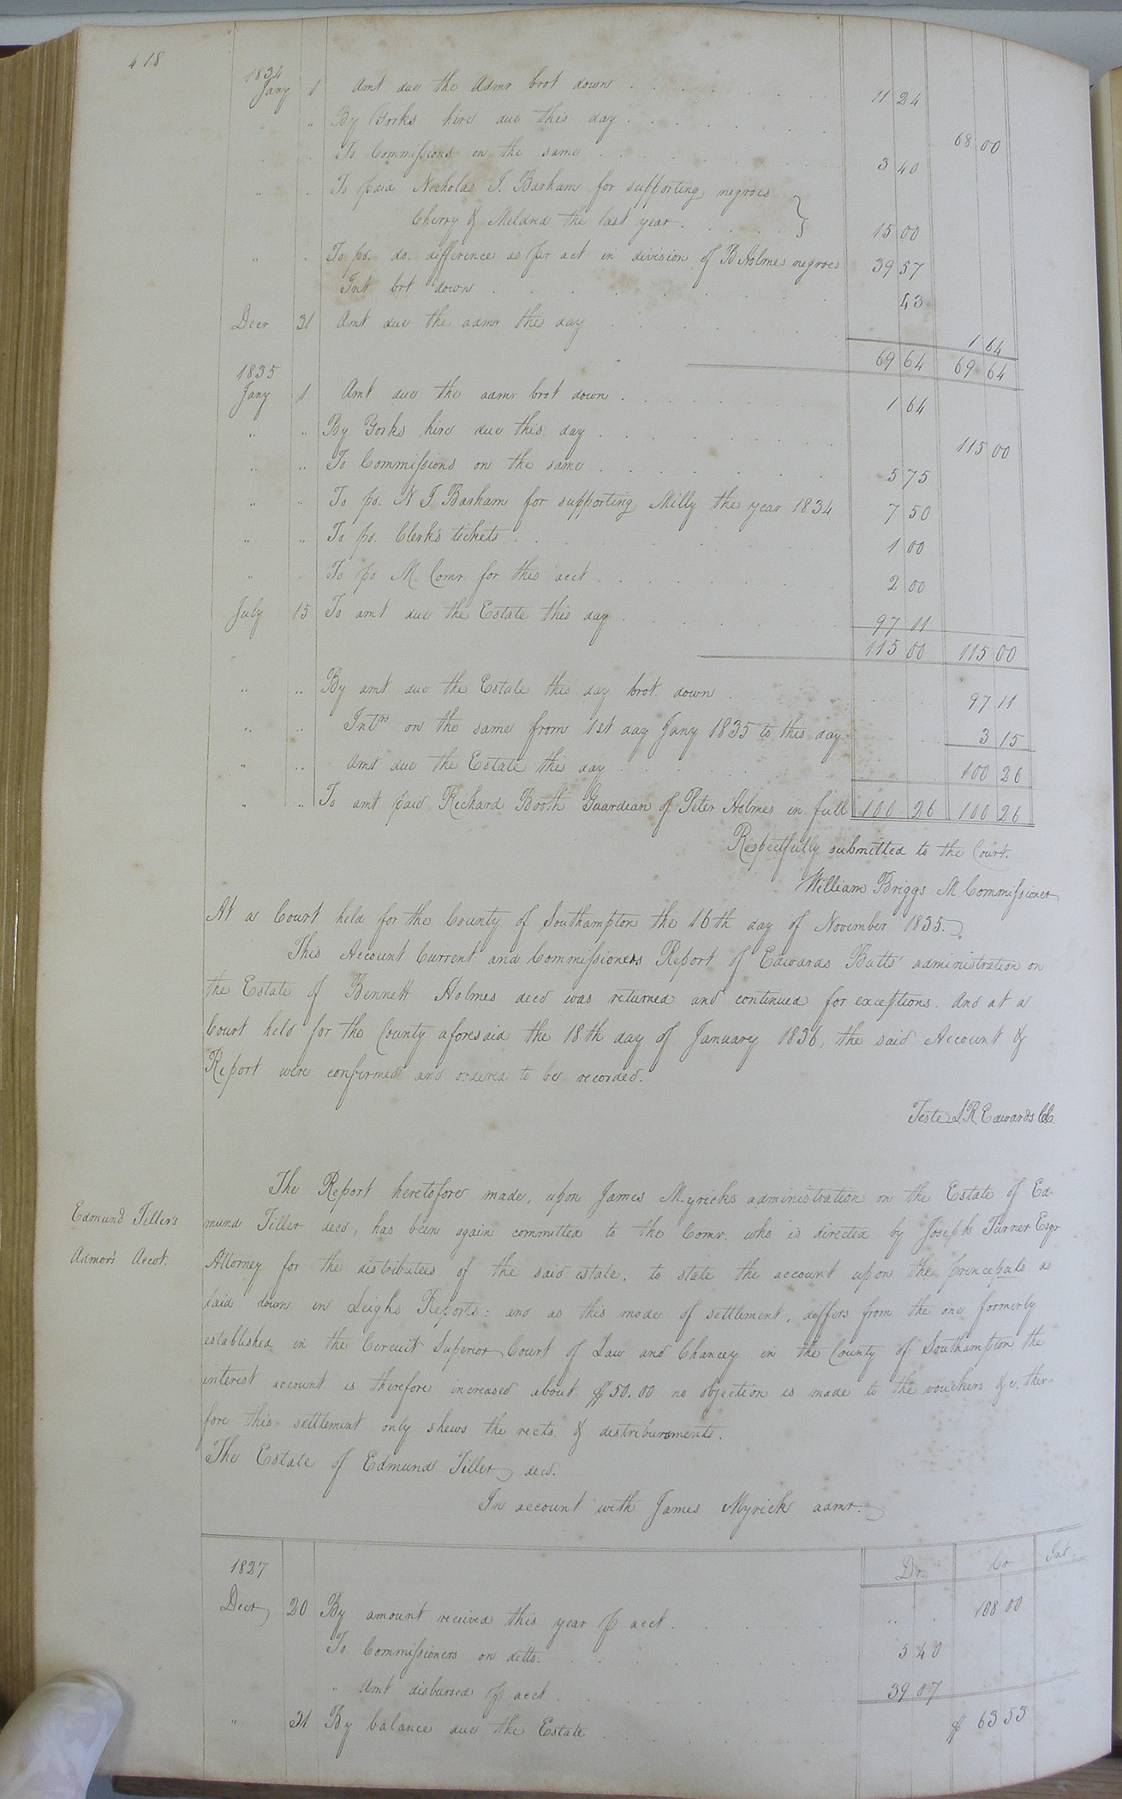 418
1834
Jany 1 Amt due the Admr brot down . . . 11 24
" By Yorks hire due this day . . . 68 00
" " To Commissions on the same . . . 3 40
" " To paid Nicholas J. Barham for supporting negroes
Cherry & Meldred the last year . . . 15 00
" " To pd. do. difference as per act in division of B Holmes negroes 39 57
Int brt down . . . 43
Decr 31 Amt due the admr this day . . . 1 64
69 64 69 64
1835
Jany 1 Amt due the admr brot down . . . 1 64
" " By Yorks hire due this day . . . 115 00
" " To Commissions on the same . . . 5 75
" " To pd. N J Barham for supporting Milly the year 1834 7 50
" " To pd. Clerks tickets . . . 1 00
" " To pd M. Comr for this acct . . . 2 00
July 15 To amt due the Estate this day . . . 97 11
115 00 115 00
" " By amt due the Estate this day brot. down . . . 97 11
" " Intrs on the same from 1st day Jany 1835 to this day. 3 15
" " Amt due the Estate this day . . . 100 26
" " To amt paid Richard Booth Guardian of Peter Holmes in full 100 26 100 26
Respectfully submitted to the Court.
William Briggs M. Commissioner
At a Court held for the County of Southampton the 16th day of November 1835.
This Account Current and Commissioners Report of Edwards Butts administration on
the Estate of Bennett Holmes decd was returned and continued for exceptions. And at a
Court held for the County aforesaid the 18th day of January 1836, the said Account &
Report were confirmed and ordered to be recorded.
Teste L R Edwards CC
The Report heretofore made, upon James Myricks administration on the Estate of Ed-
Edmund Tiller's
mund Tiller decd, has been again committed to the Comr. who is directed by Joseph Turner Esqr
Admors Accot.
Attorney for the distributees of the said estate, to state the account upon the princepals as
laid down in Leighs Reports: and as this mode of settlement, differs from the one formerly
established in the Circuit Superior Court of Law and Chancey in the County of Southampton the
interest account is therefore increased about $50.00 no objection is made to the vouchers &c, ther-
fore this settlement only shews the rects. & distribursments.
The Estate of Edmund Tiller decd.
In account with James Myrick admr.
1827 Dr. Cr Int
Decr 20 By amount received this year p acct . . . 108 00
To Commissioners on ditto . . . 5 40
" Amt disbursed p acct . . . 39 07
" 31 By balance due the Estate . . . $ 63 53